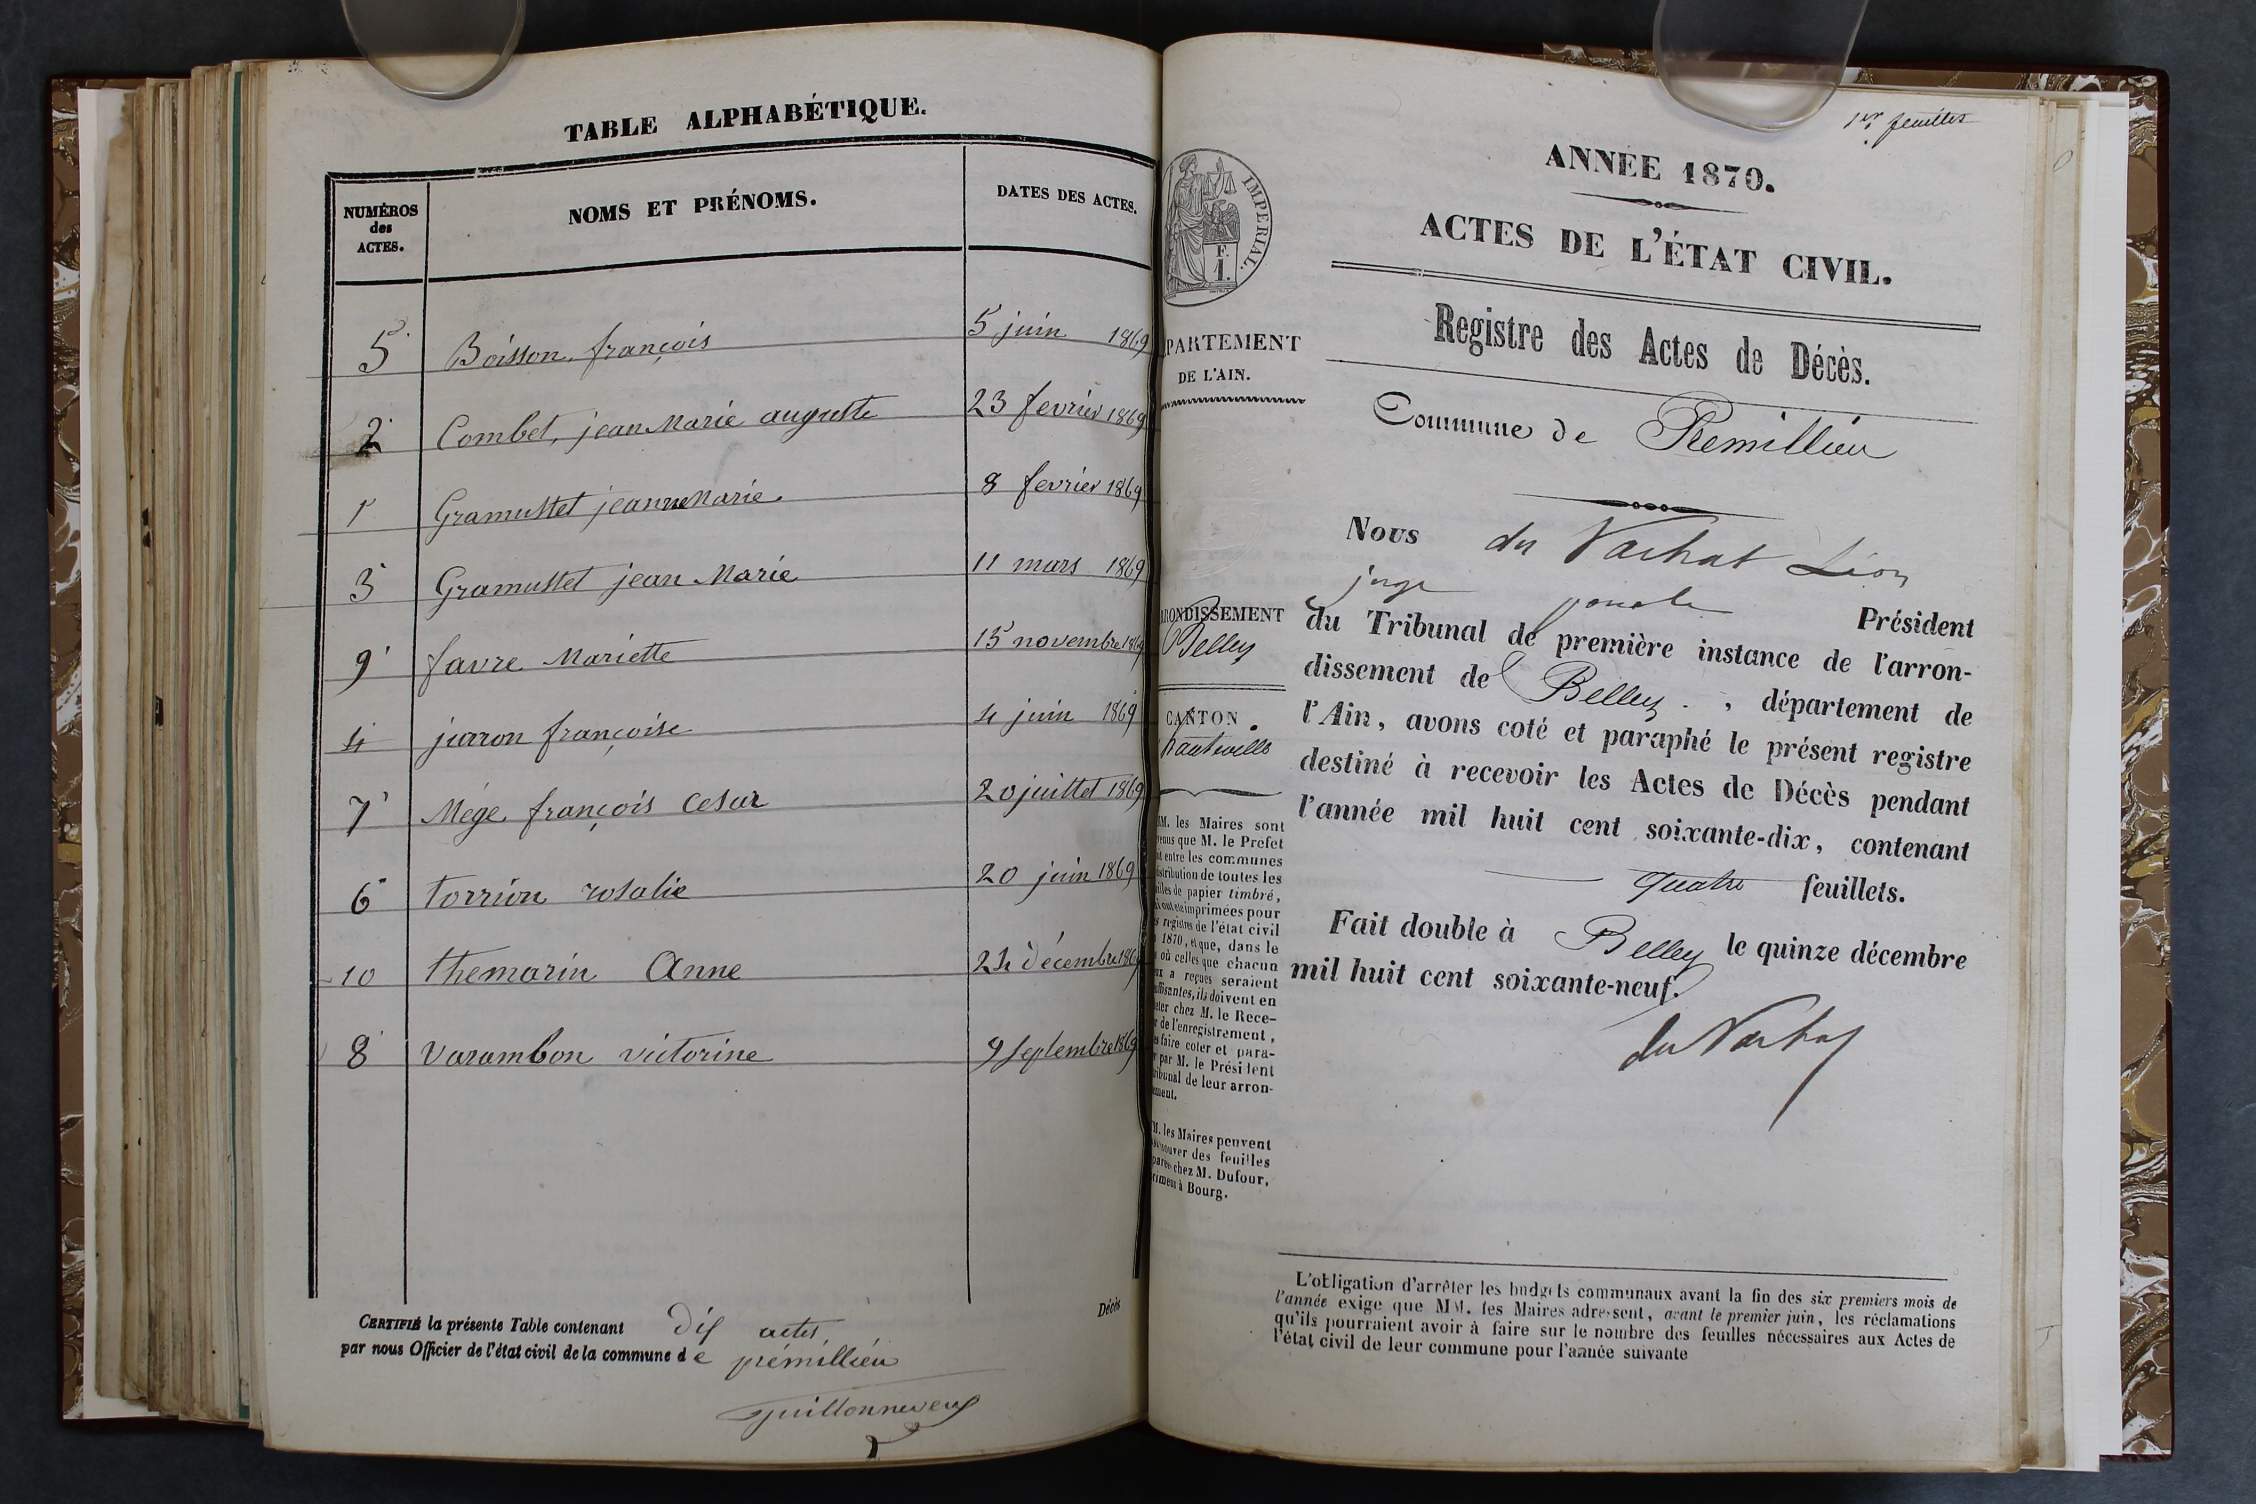 TABLE ALPHABÉTIQUE.
NUMÉROS des ACTES.
NOMS ET PRÉNOMS.
DATES DES ACTES.
5 Boisson françois 5 juin 1869
2 Combet, jean Marie auguste 23 fevrier 1869
1 Gramustet jeanne Marie 8 fevrier 1869
3 Gramustet jean Marie 11 mars 1869
9 favre Mariette 15 novembre 1869
4 juron françoise 4 juin 1869
7 Mége françois Cesar 20 juillet 1869
6 torrion rosalie 20 juin 1869
10 themarin Anne 24 décembre 1869
8 varambon victorine 9 septembre 1869
Décès
CERTIFIÉ la présente Table contenant dix actes,
par nous Officier de l'état civil de la commune de prémillieu
1er feuillet
IMPERIAL.
F.
1.
ANNÉE 1870.
ACTES DE L'ÉTAT CIVIL.
Registre des Actes de Décès.
PARTEMENT
DE L'AIN.
Commune de Premillieu
RONDISSEMENT
Belley
CANTON
hauteville
MM. les Maires sont
venus que M. le Préfet
it entre les communes
istribution de toutes les
uilles de papier timbré,
i ont été imprimées pour
s registres de l'état civil
1870, et que, dans le
où celles que chacun
ux a reçues seraient
uffisantes, ils doivent en
eter chez M. le Rece-
r de l'enregistrement,
es faire coter et para-
r par M. le Président
ribunal de leur arron-
ement.
M. les Maires peuvent
ouver des feuilles
parées chez M. Dufour,
rimeur à Bourg.
Nous du Varhat Léon
juge
Président
du Tribunal de première instance de l'arron-
dissement de Belley, département de
l'Ain, avons coté et paraphé le présent registre
destiné à recevoir les Actes de Décès pendant
l'année mil huit cent soixante-dix, contenant
quatre feuillets.
Fait double à Belley le quinze décembre
mil huit cent soixante-neuf.
du Varhat
L'obligation d'arrêter les budgets communaux avant la fin des six premiers mois de
l'année exige que MM. les Maires adressent, avant le premier juin, les réclamations
qu'ils pourraient avoir à faire sur le nombre des feuilles nécessaires aux Actes de
l'état civil de leur commune pour l'année suivante